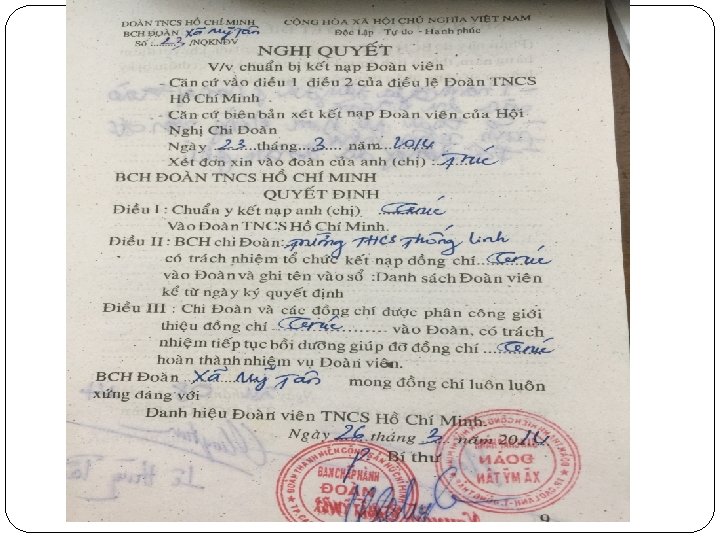 ĐOÀN TNCS HỒ CHÍ MINH
CỘNG HÒA XÃ HỘI CHỦ NGHĨA VIỆT NAM
BCH ĐOÀN Xã Mỹ Tân
Độc Lập Tự do - Hạnh phúc
Số : 23 /NQKNĐV
NGHỊ QUYẾT
V/v chuẩn bị kết nạp Đoàn viên
Căn cứ vào điều 1 điều 2 của điều lệ Đoàn TNCS
Hồ Chí Minh .
- Căn cứ biên bản xét kết nạp Đoàn viên của Hội
Nghị Chi Đoàn
Ngày 23 tháng 3 năm 2014
Xét đơn xin vào đoàn của anh (chị) : Trúc
BCH ĐOÀN TNCS HỒ CHÍ MINH
QUYẾT ĐỊNH
Điều I : Chuẩn y kết nạp anh (chị) Trúc
Vào Đoàn TNCS Hồ Chí Minh.
Điều II : BCH chi Đoàn: Trường THCS Thống Linh
có trách nhiệm tổ chức kết nạp đồng chí Trúc
vào Đoàn và ghi tên vào sổ :Danh sách Đoàn viên
kể từ ngày ký quyết định
Điều III : Chi Đoàn và các đồng chí được phân công giới
thiệu đồng chí Trúc vào Đoàn, có trách
nhiệm tiếp tục bồi dưỡng giúp đỡ đồng chí Trúc
hoàn thành nhiệm vụ Đoàn viên.
BCH Đoàn Xã Mỹ Tân mong đồng chí luôn luôn
xứng đáng với
Danh hiệu Đoàn viên TNCS Hồ Chí Minh.
Ngày 26 tháng 3 năm 2014
Bí thư
BAN CHẤP HÀNH
ĐOÀN
XÃ MỸ TÂN
ĐOÀN
XÃ MỸ TÂN
9